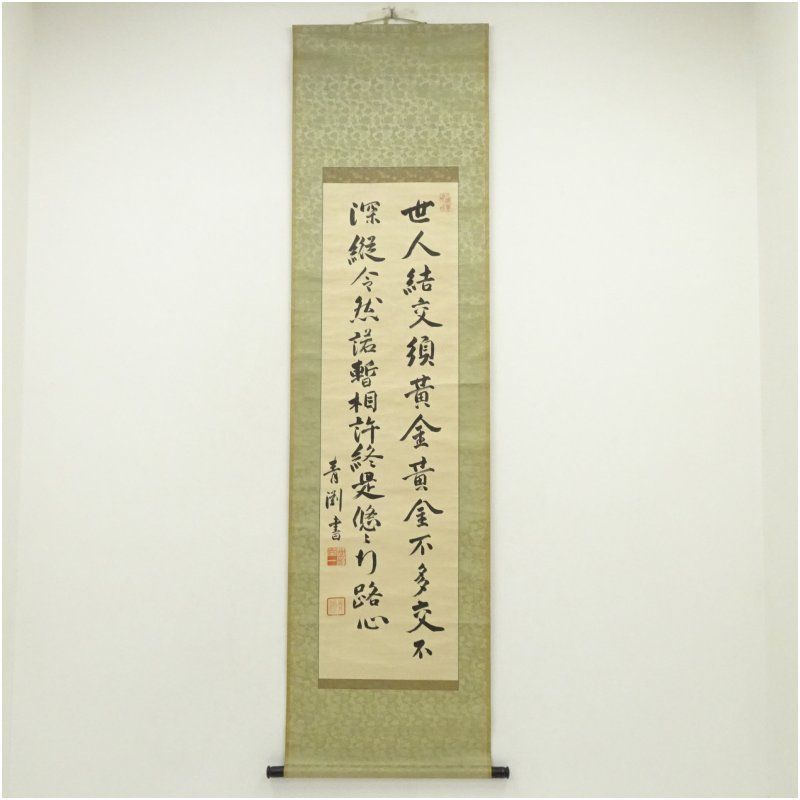 世人結交須黄金黄金不多交不
深縦令然諾暫相許終是悠々行路心
青淵書